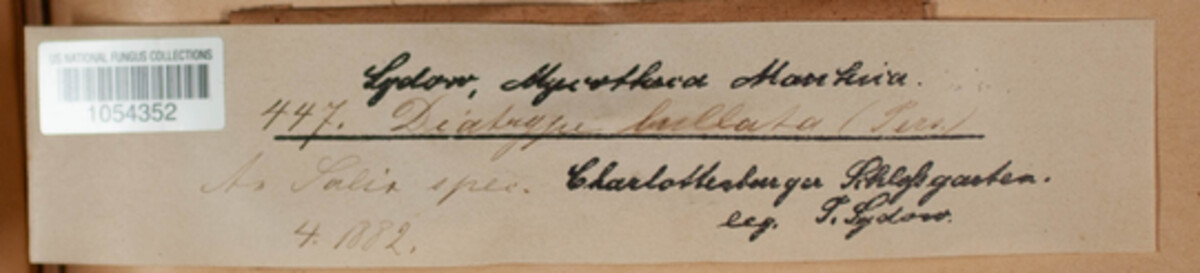 US NATIONAL FUNGUS COLLECTIONS
1054352
Sydow, Mycotheca Marchica.
447. Diatrype bullata (Pers.)
An Salix spec. Charlottenburger Schloßgarten.
4. 1882. leg. P. Sydow.